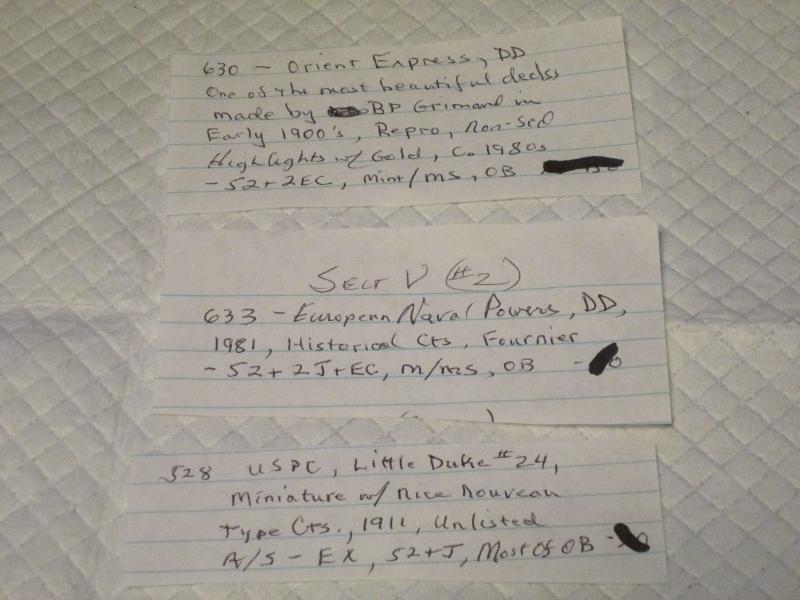 630 - Orient Express, DD
One of the most beautiful decks
made by BP Grimand in
Early 1900's, Repro, Non-Std
Highlights w/ Gold, C. 1980s
- 52 + 2EC, mint/ms, OB
Sect V (#2)
633 - European Naval Powers, DD,
1981, Historical Cts, Fournier
- 52 + 2J + EC, m/ms, OB -
528 USPC, Little Duke #24,
Miniature w/ nice nouveau
type Cts., 1911, Unlisted
A/S - EX, 52+J, Most of OB -